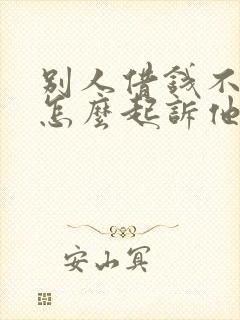 別人借錢不
怎麼起訴他
安山冥